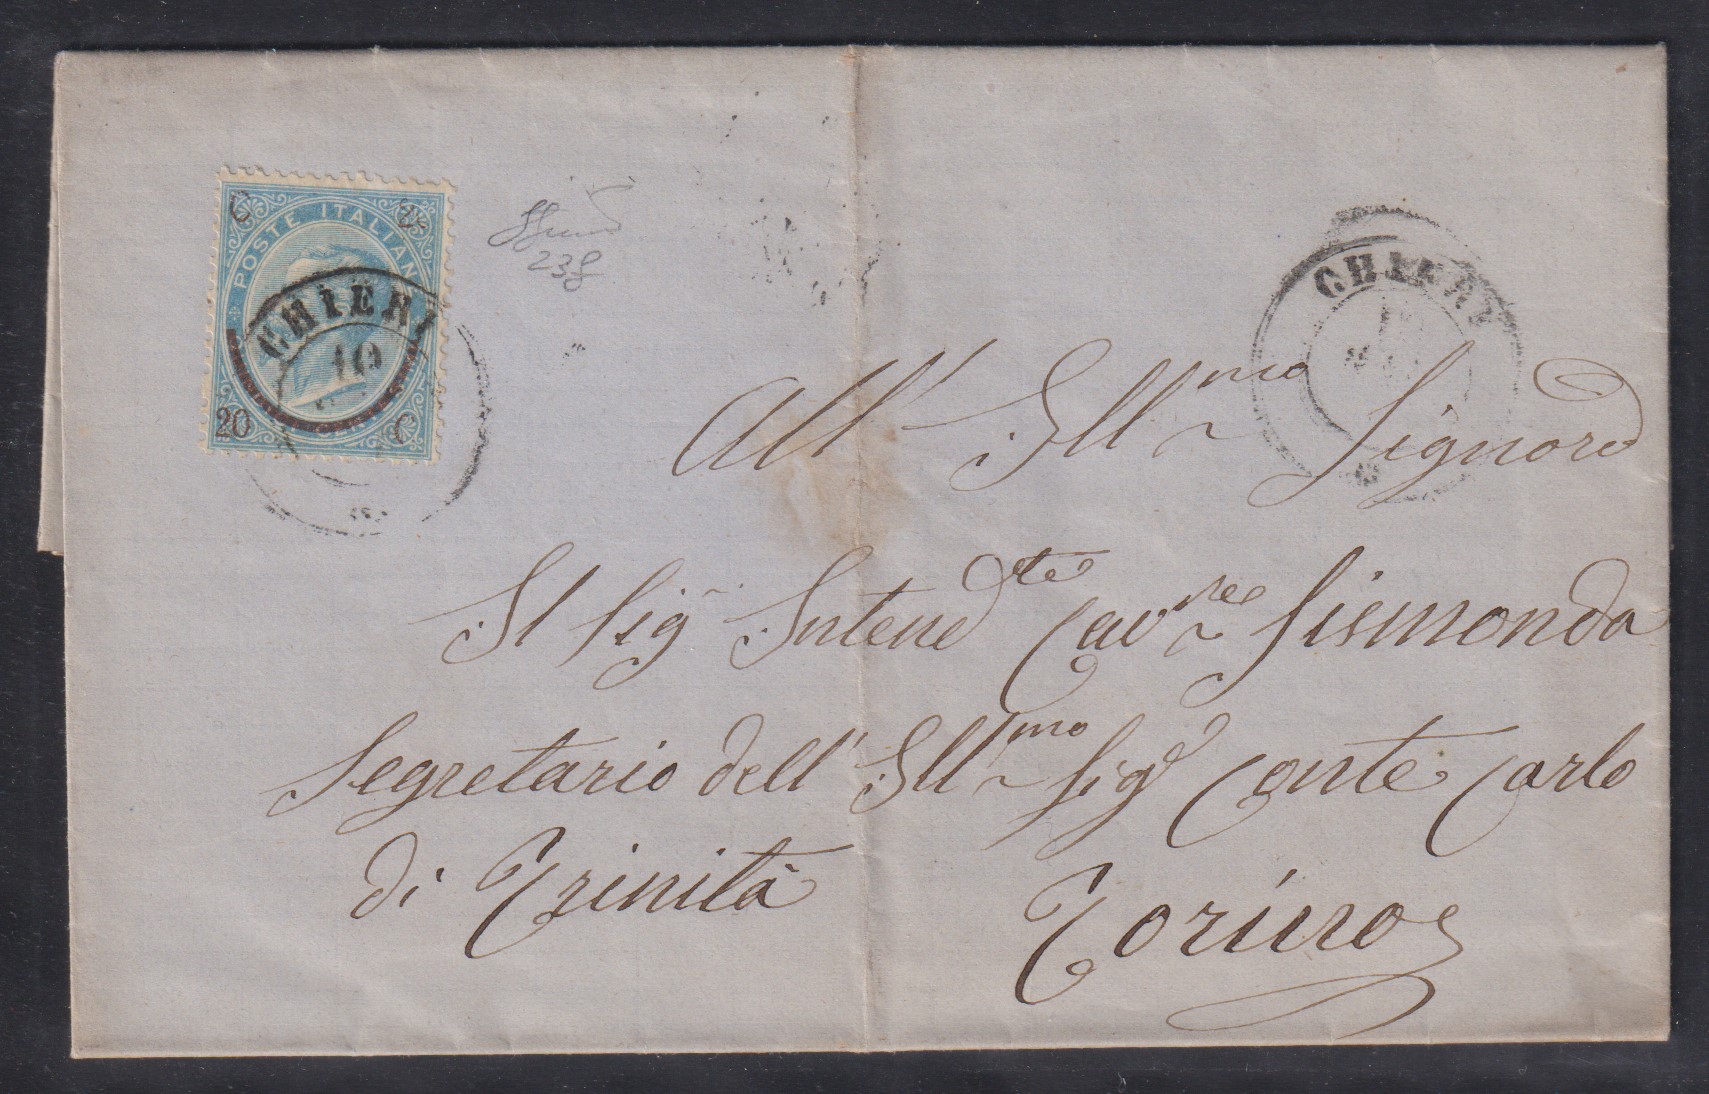 C
POSTE ITALIANE
20
C
CHIERI
10
238
CHIERI
All' Ill.mo Signore
Il Sig. Intend.te Cav.re Sismonda
Segretario dell' Ill.mo Sig.r Conte Carlo
di Trinità
Torino